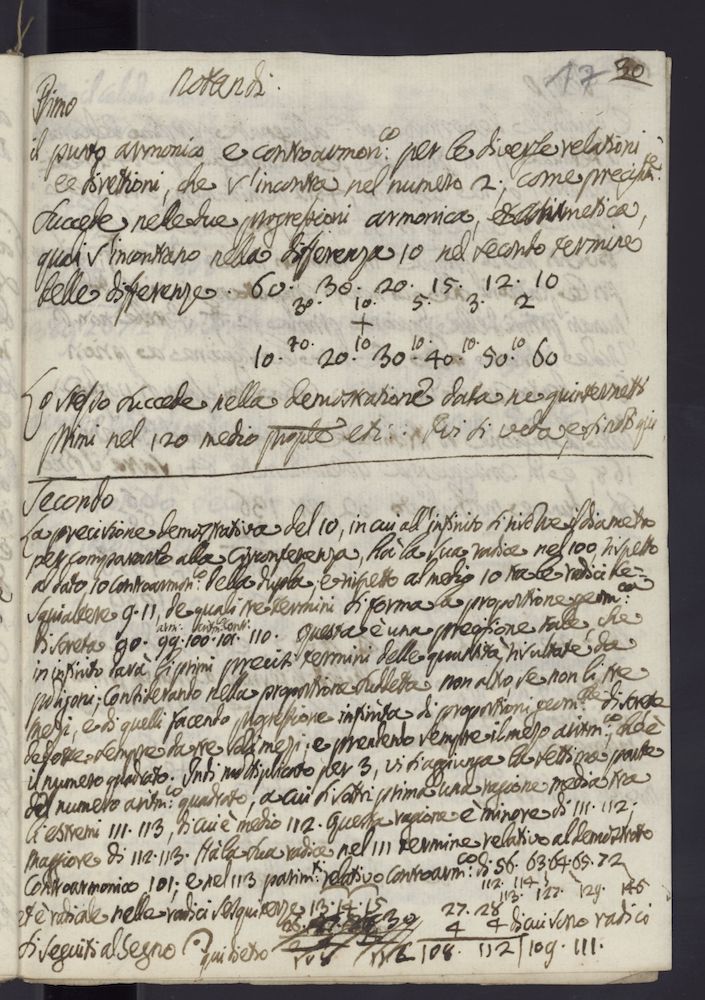 Notandi.
17 30
Primo
il punto armonico e controarmon:co per le diverse relationi
e direttioni, che s'incontra nel numero 2; come precisam:te
succede nelle due progressioni armonica, aritmetica,
quali s'incontrano nella differenza 10 nel secondo termine
delle differenze. 60. 30. 20. 15. 12. 10
30. 10. 5. 3. 2
10. 20. 30. 40. 50. 60
10. 10. 10. 10
Lo stesso succede nella demostratione data ne quinternetti
primi nel 120 medio etc: Ivi si veda, e si noti qui
Secondo
La precisione demostrativa del 10, in cui all'infinito si risolve il diametro
per compararlo alla Circonferenza, ha la sua radice nel 100, rispetto
a dato 10 controarmon:co della dupla, e rispetto al medio 10 tra le radici se-
squialtere 9. 11, de quali tre termini si forma la proportione geom:ca
discreta 90. 99. 100. 101. 110. Questa è una precisione tale, che
arm: aritm: contr:
in infinito darà li primi precisi termini delle quantità risultate da
Considerando nella proportione suddetta non altro se non li tre
mezi, e di quelli facendo progressione infinita di proportioni geom:che discrete
dedotte sempre da tre soli mezi; e prendendo sempre il mezo aritm:co, ch'è
il numero quadrato. Indi multiplicato per 3, vi si aggiunga la settima parte
del numero aritm:co quadrato, a cui si sottri prima una ragione media tra
li estremi 111. 113, di cui è medio 112. Questa ragione è minore di 111. 112;
maggiore di 112. 113. Ha la sua radice nel 111 termine relativo al demostrato
Controarmonico 101; e nel 113 parim:te relativo Controarm:co di 56. 63. 64. 65. 72
112. 114
113. 127. 129. 145
et è radicale nelle radici sesquiterze 13. 14. 15 27. 28
30 4 4 di cui sono radici
di seguiti al segno qui dietro 108. 112 | 109. 111.